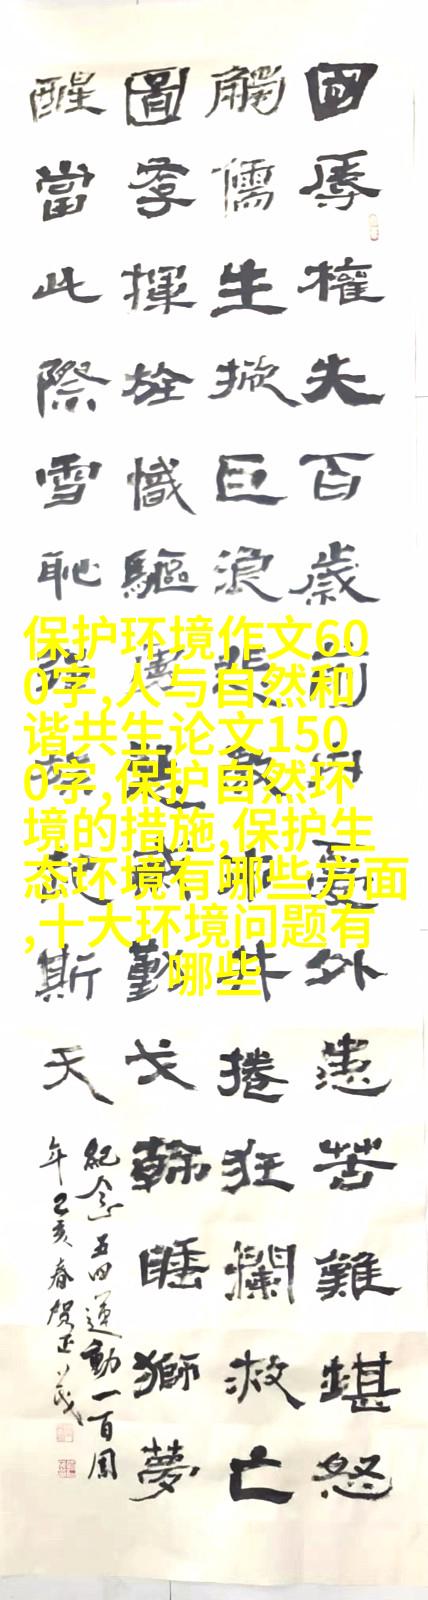 國辱權失百歲前內憂外患苦難堪怒
觸儒生掀巨浪
井捲狂瀾救亡
圖存揮旌幟驅
戈斡睡獅夢
醒當此際雪恥
斯天
紀念五四運動一百周
年己亥春賀正茂
保护环境作文60
0字,人与自然和
谐共生论文150
0字,保护自然环
境的措施,保护生
态环境有哪些方面
,十大环境问题有
哪些